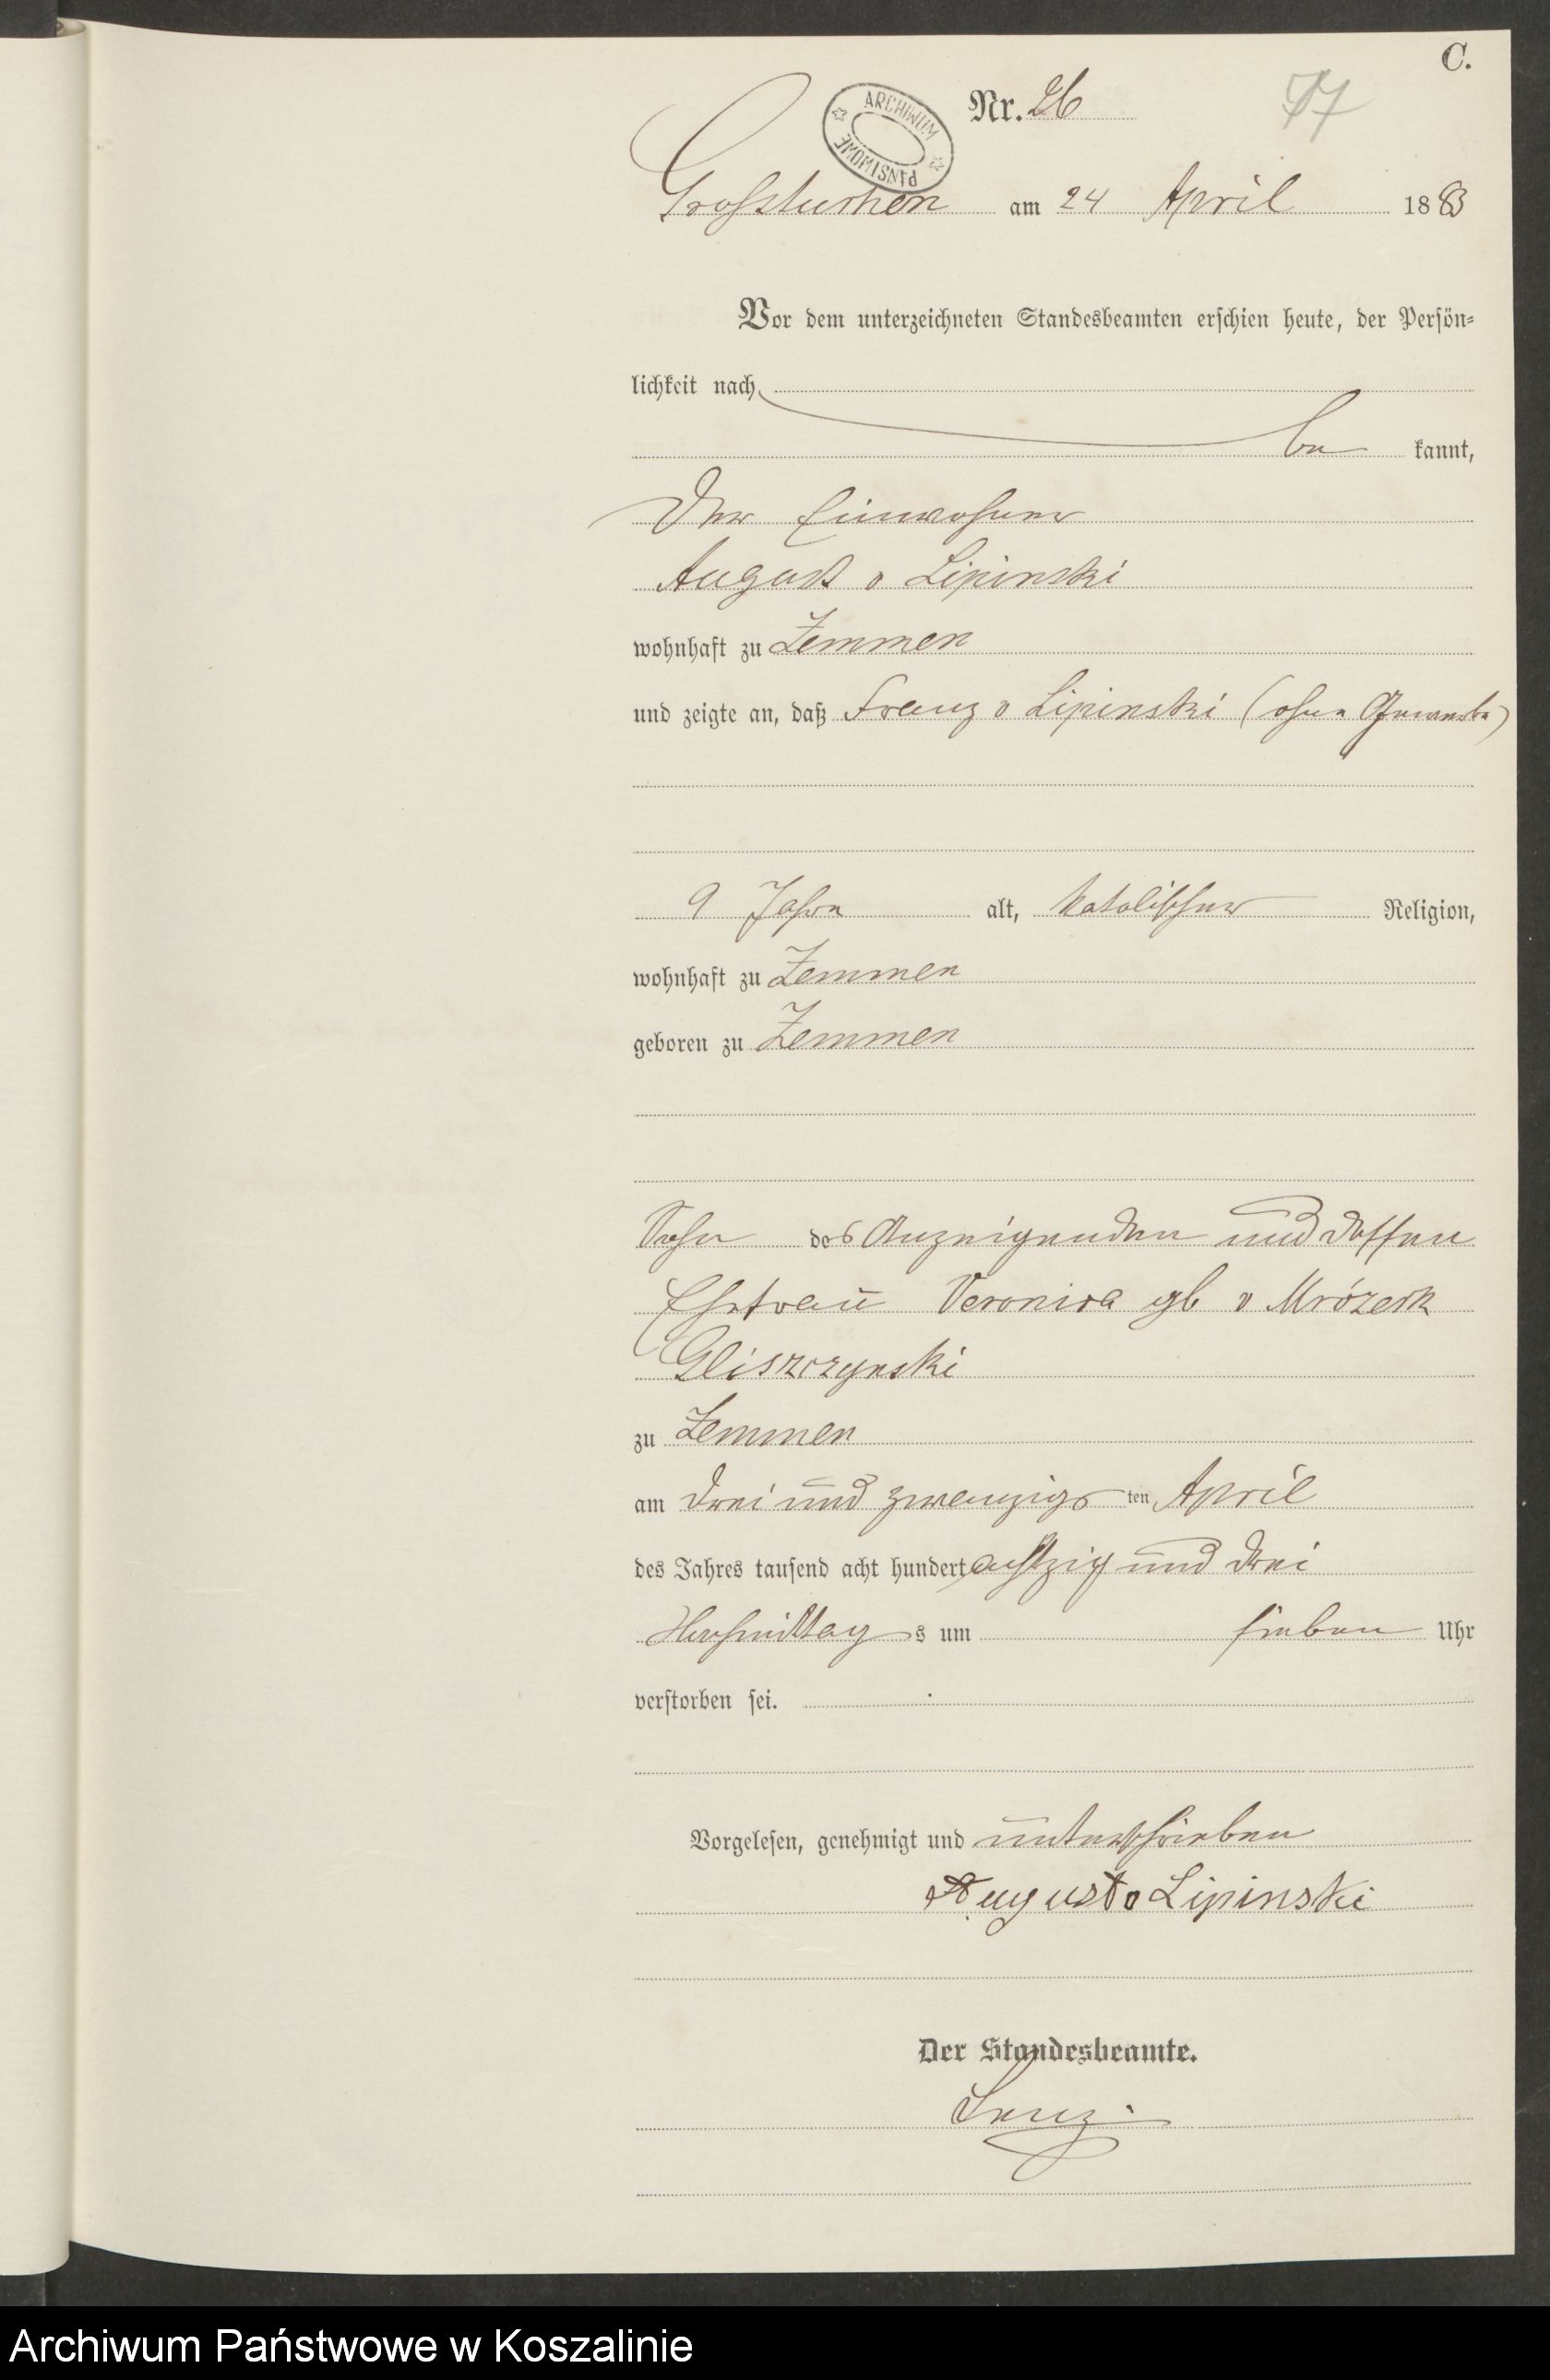 C.
Nr. 26
77
ARCHIWUM PAŃSTWOWE
Grosstuchen am 24 April 1883
Vor dem unterzeichneten Standesbeamten erschien heute, der Persön-
lichkeit nach
be kannt,
Der Einwohner
August v Lipinski
wohnhaft zu Zemmen
und zeigte an, daß Franz v Lipinski (ohne Gewerbe)
9 Jahre alt, katolischer Religion,
wohnhaft zu Zemmen
geboren zu Zemmen
Sohn des Anzeigenden und dessen
Ehefrau Veronica gb v Mrózeck
Gliszczynski
zu Zemmen
am drei und zwanzigs ten April
des Jahres tausend acht hundert achtzig und drei
Nachmittag s um sieben Uhr
verstorben sei.
Vorgelesen, genehmigt und unterschrieben
August v Lipinski
Der Standesbeamte.
Archiwum Państwowe w Koszalinie